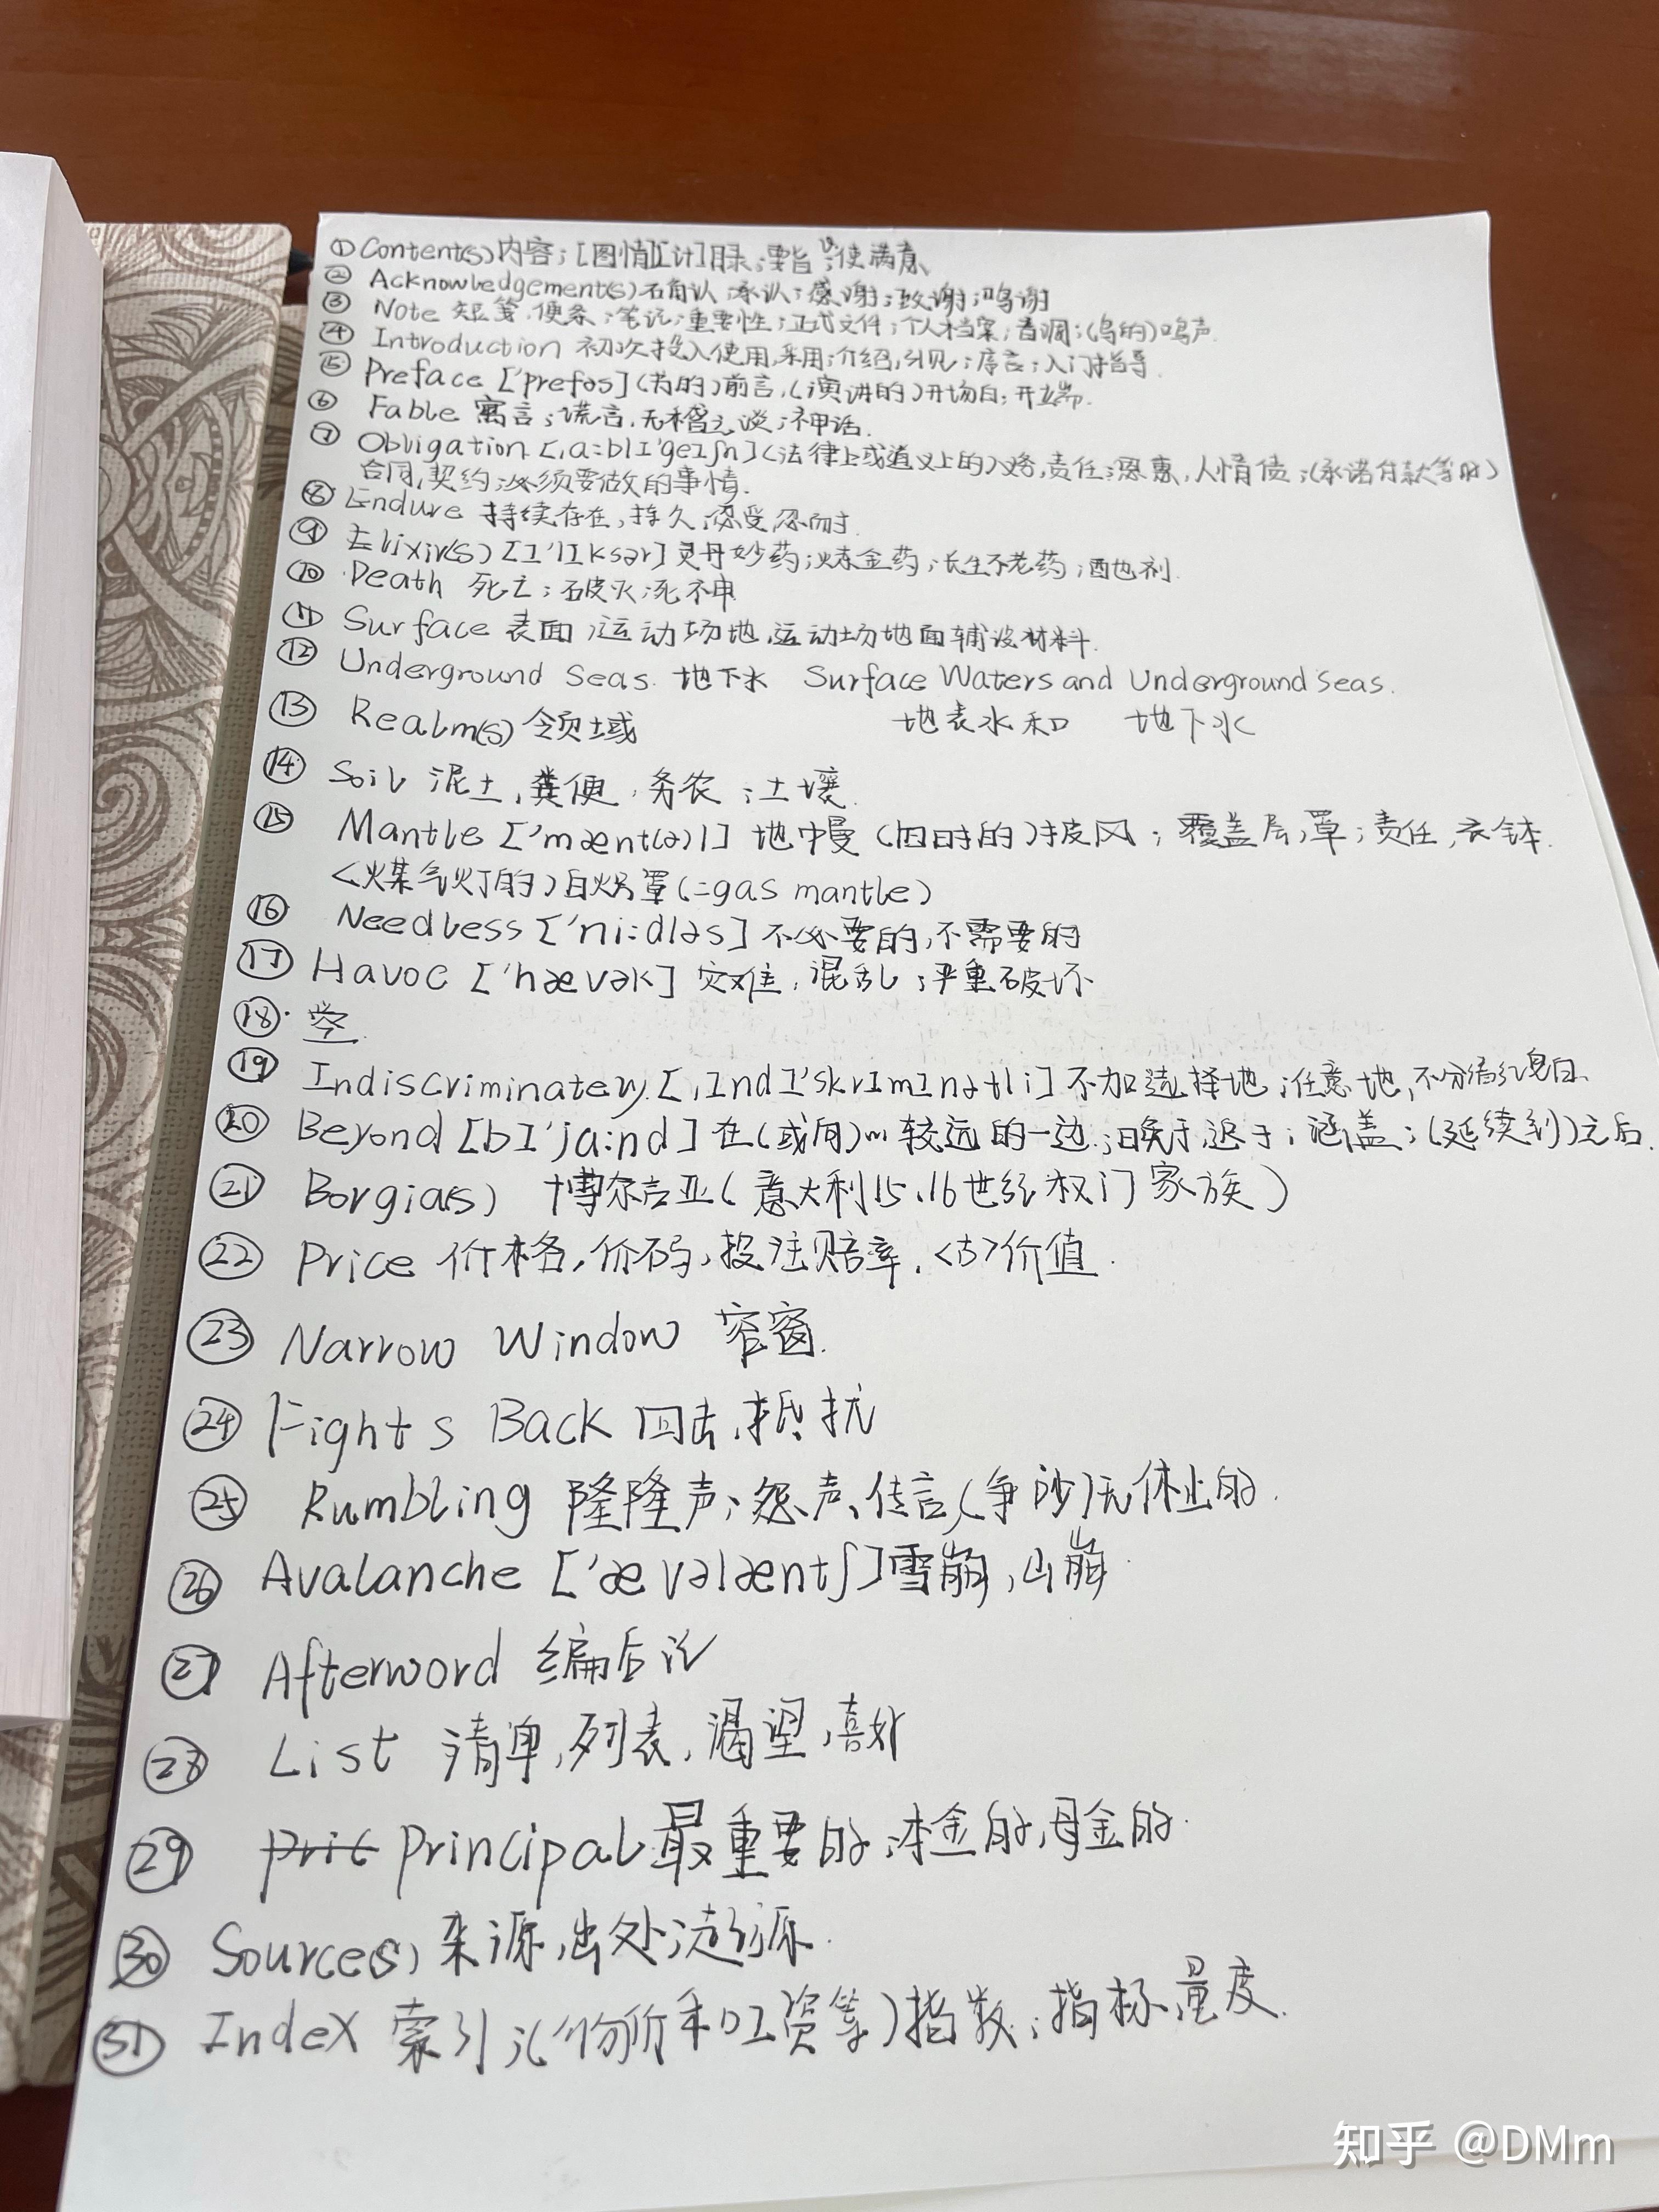 ① Content(s) 内容；[图情][计]目录；要旨；vt.使满意、
② Acknowledgement(s) 确认；承认；感谢；致谢；鸣谢
③ Note 短笺，便条；笔记；重要性；正式文件；个人档案；音调；(鸟的)鸣声.
④ Introduction 初次投入使用，采用；介绍，引见；序言；入门指导.
⑤ Preface ['prefəs] (书的)前言，(演讲的)开场白；开端.
⑥ Fable 寓言；谎言，无稽之谈；神话.
⑦ Obligation [ˌaːblɪ'geɪʃn] (法律上或道义上的)义务，责任；恩惠，人情债；(承诺付款等的)
合同，契约；必须要做的事情.
⑧ Endure 持续存在，持久；忍受，忍耐.
⑨ Elixir(s) [ɪ'lɪksər] 灵丹妙药；炼金药；长生不老药；酏剂.
⑩ Death 死亡；破灭；死神
⑪ Surface 表面；运动场地，运动场地面铺设材料.
⑫ Underground Seas. 地下水 Surface Waters and Underground Seas.
⑬ Realm(s) 领域 地表水和 地下水
⑭ Soil 泥土，粪便，务农；土壤.
⑮ Mantle ['mænt(ə)l] 地幔 (旧时的)披风；覆盖层，罩；责任，衣钵.
<煤气灯的)白炽罩(=gas mantle)
⑯ Needless ['niːdləs] 不必要的，不需要的
⑰ Havoc ['hævək] 灾难，混乱；严重破坏
⑱ 空.
⑲ Indiscriminately [ˌɪndɪ'skrɪmɪnətli] 不加选择地；任意地，不分青红皂白.
⑳ Beyond [bɪ'jaːnd] 在(或向)…较远的一边；晚于，迟于；涵盖；(延续到)之后.
㉑ Borgia(s) 博尔吉亚(意大利15、16世纪权门家族)
㉒ Price 价格，价码，投注赔率，<古>价值.
㉓ Narrow Window 窄窗.
㉔ Fights Back 回击，抵抗
㉕ Rumbling 隆隆声；怨声、传言，(争吵)无休止的.
㉖ Avalanche ['ævəlæntʃ] 雪崩，山崩.
㉗ Afterword 编后记
㉘ List 清单，列表，渴望，喜好
㉙ Prit Principal 最重要的；本金的，母金的.
㉚ Source(s) 来源，出处；
㉛ Index 索引；(物价和工资等)指数；指标，量度.
知乎 @DMm